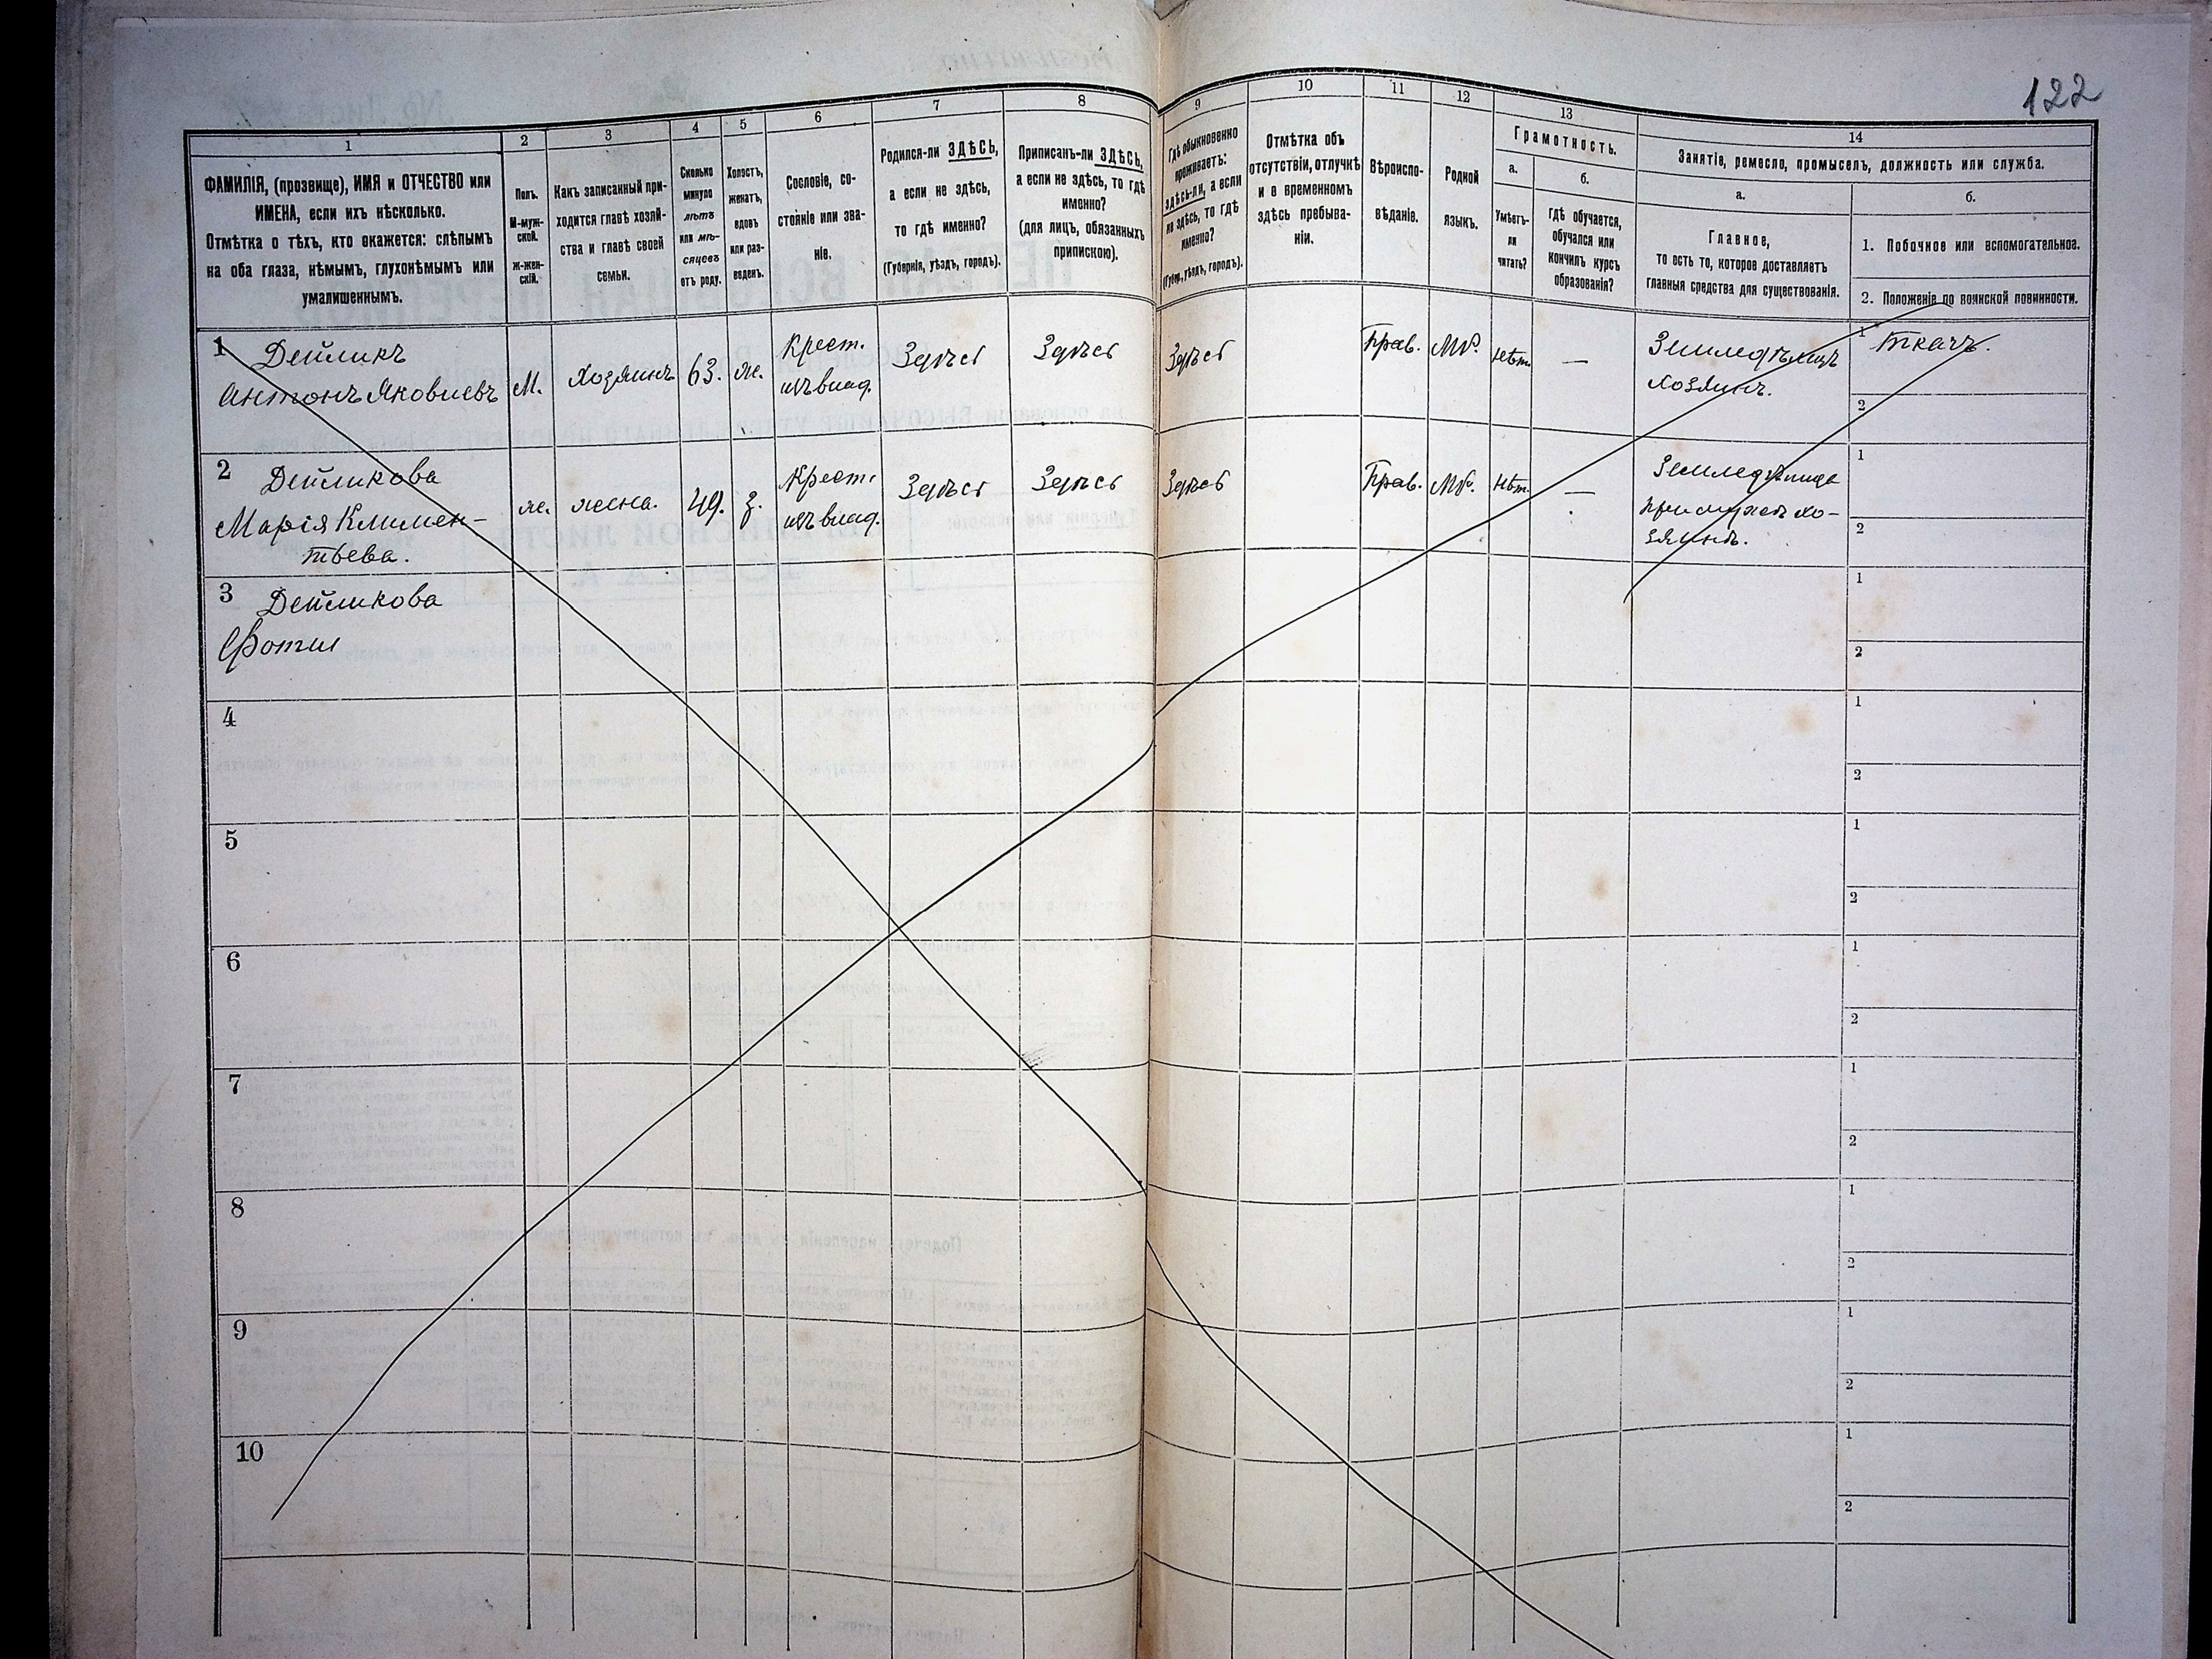 122
1
2
3
4
5
6
7
8
9
10
11
12
13
14
ФАМИЛІЯ, (прозвище), ИМЯ и ОТЧЕСТВО или
ИМЕНА, если ихъ нѣсколько.
Отмѣтка о тѣхъ, кто окажется: слѣпымъ
на оба глаза, нѣмымъ, глухонѣмымъ или
умалишеннымъ.
Полъ.
М-муж-
ской.
Ж-жен-
скій.
Какъ записанный при-
ходится главѣ хозяй-
ства и главѣ своей
семьи.
Сколько
минуло
лѣтъ
или мѣ-
сяцевъ
отъ роду.
Холостъ,
женатъ,
вдовъ
или раз-
веденъ.
Сословіе, со-
стояніе или зва-
ніе.
Родился-ли ЗДѢСЬ,
а если не здѣсь,
то гдѣ именно?
(Губернія, уѣздъ, городъ).
Приписанъ-ли ЗДѢСЬ,
а если не здѣсь, то гдѣ
именно?
(для лицъ, обязанныхъ
припискою).
Гдѣ обыкновенно
проживаетъ:
здѣсь-ли, а если
не здѣсь, то гдѣ
именно?
(Губерн., уѣздъ, городъ).
Отмѣтка объ
отсутствіи, отлучкѣ
и о временномъ
здѣсь пребыва-
ніи.
Вѣроиспо-
вѣданіе.
Родной
языкъ.
Грамотность.
а.
Умѣетъ-
ли
читать?
б.
Гдѣ обучается,
обучался или
кончилъ курсъ
образованія?
Занятіе, ремесло, промыселъ, должность или служба.
а.
Главное,
то есть то, которое доставляетъ
главныя средства для существованія.
б.
1. Побочное или вспомогательное.
2. Положеніе по воинской повинности.
1
Дейликъ
Антонъ Яковлевъ
М.
Хозяинъ
63.
ж.
Крест.
изъ влад.
Здѣсь
Здѣсь
Здѣсь
Прав.
Мр.
нѣт.
—
Земледѣлецъ
хозяинъ.
1
Ткачъ.
2
2
Дейликова
Марія Климен-
тьева.
ж.
жена.
49.
з.
Крест.
изъ влад.
Здѣсь
Здѣсь
Здѣсь
Прав.
Мр.
нѣт.
—
Земледѣлица
при мужѣ хо-
зяинѣ.
1
2
3
Дейликова
Фотин
1
2
4
1
2
5
1
2
6
1
2
7
1
2
8
1
2
9
1
2
10
1
2